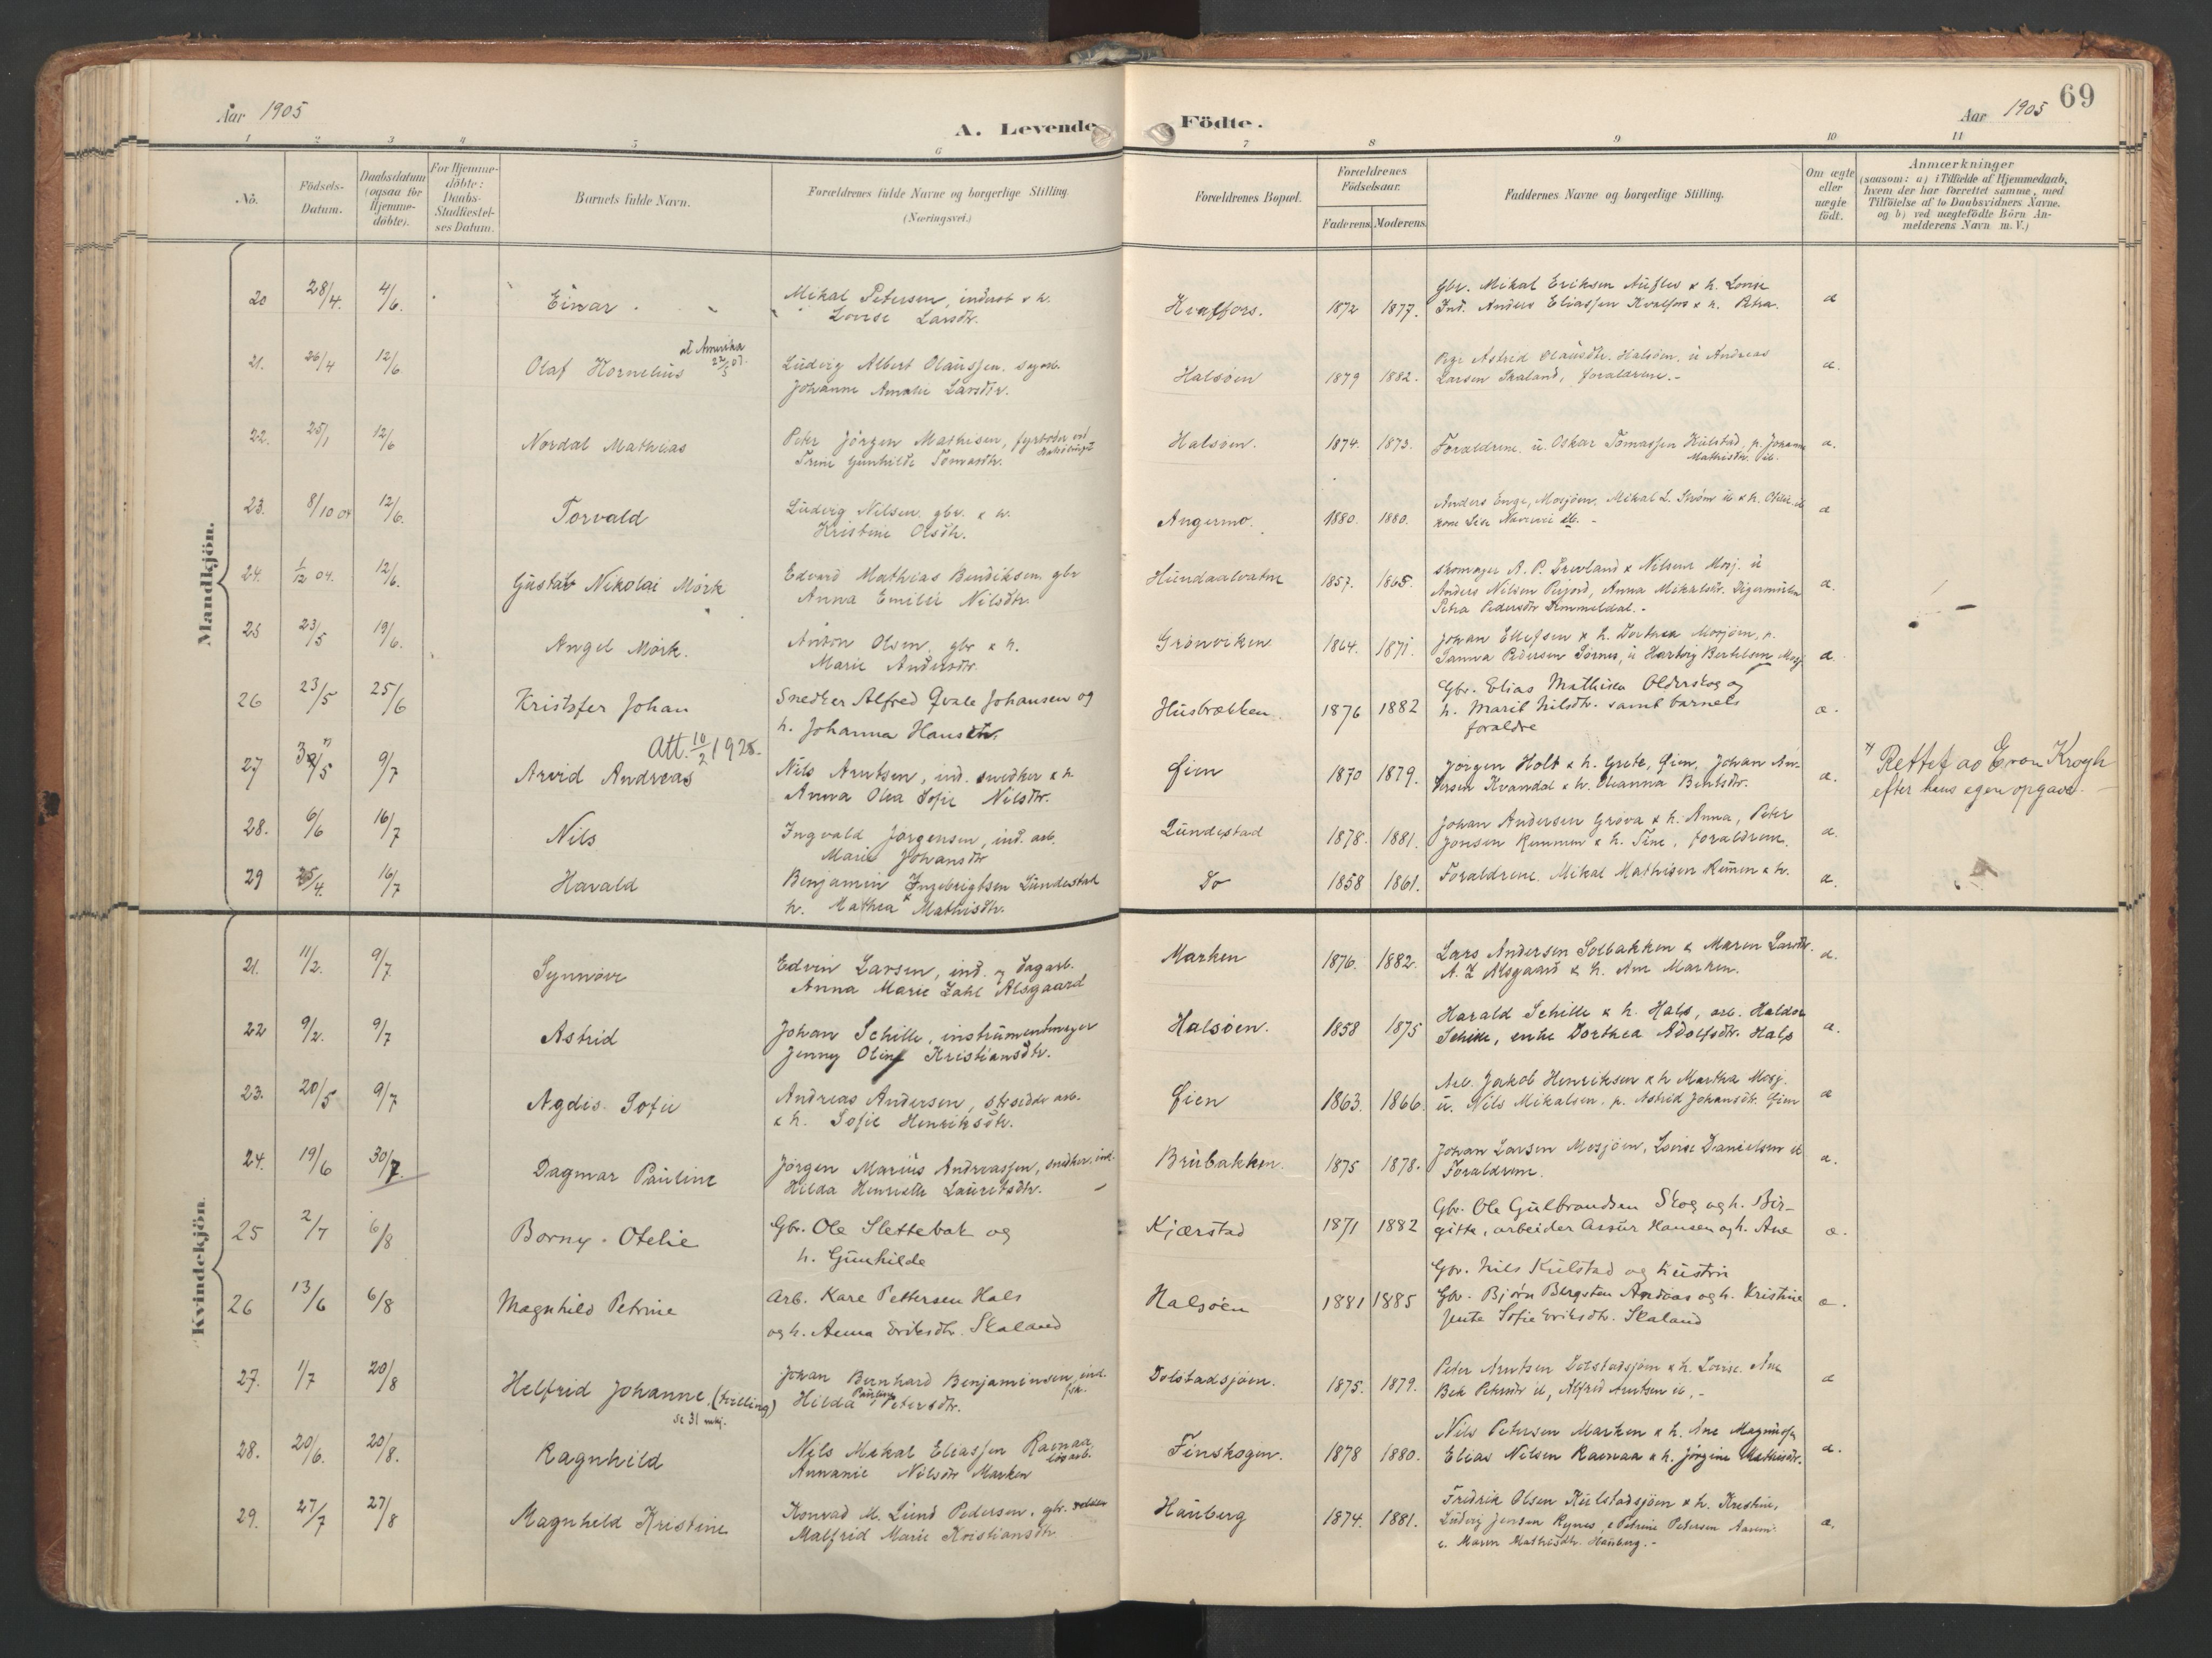 Aar 1905
A. Levende
Födte.
Aar 1905
69
1 2 3 4 5 6 7 8 9 10 11
Nò.
Födsels-
Datum.
Daabsdatum
(ogsaa for
Hjemme-
döbte).
For Hjemme-
döbte:
Daabs-
Stadfæstel-
ses Datum.
Barnets fulde Navn.
Forældrenes fulde Navne og borgerlige Stilling.
(Næringsvei.)
Forældrenes Bopæl.
Forældrenes
Födselsaar.
Faderens. Moderens.
Faddernes Navne og borgerlige Stilling.
Om ægte
eller
uægte
födt.
Anmærkninger
(saasom: a) i Tilfælde af Hjemmedaab,
hvem der har forrettet samme, med
Tilföielse af to Daabsvidners Navne,
og b) ved uægtefödte Börn An-
melderens Navn m. V.)
Mandkjön.
20 28/4. 4/6. Einar
Mikal Petersen, inderst & h.
Lovise Larsdtr.
Kvalfors. 1872 1877.
Gbr. Mikal Eriksen & h. Lovise
Ind. Anders Eliassen Kvalfors & h. Petra.
a
21. 26/4 12/6 Olaf Kornelius
at Amerika
Ludvig Albert Olaussen. sagarb.
Johanne Amalie Larsdtr.
Halsöen 1879 1882.
Pige Astrid Olausdtr. Halsöen, u Andreas
Larsen Skaland, forældrene.-
a.
22. 25/1 12/6 Nordal Mathias
Peter Jörgen Mathisen, fyrböder ved
Trine Gunhilde Tomasdtr.
Halsöen. 1874. 1873.
Forældrene. u. Oskar Tomassen Kulstad, p. Johanne
Mathisdtr. ib.
a.
23. 8/10 04 12/6. Torvald
Ludvig Nilsen. gbr. & h.
Kristine Olsdtr.
Angermo. 1880. 1880.
Anders Enge, Mosjöen, Mikal L. Ström ib & h. Otelie ib
kone Lise ib. -
a
24. 1/12 04. 12/6. Gustav Nikolai Mörk
Edvard Mathias Bendiksen. gbr
Anna Emilie Nilsdtr.
Hundaalvatne 1857. 1865.
skomager A. P. & Nilsine Mosj. u
Anders Nilsen, Anna Mikalsdtr.
Petra Pedersdtr. -
a.
25 23/5 19/6. Angel Mörk.
Anton Olsen, gbr & h.
Marie Andersdtr.
Grönviken 1864. 1871.
Johan Ellefsen & h. Dorthea Mosjöen, p.
Sanna Pedersen, u Hartvig Bertelsen Mosj
a.
26 23/5 25/6 Kristofer Johan
Snedker Alfred Qvale Johansen og
h. Johanna Hansdtr.
Husbrækken 1876 1882
Gbr. Elias Mathisen Olderskog og
h. Marit Nilsdtr. samt barnets
foraldre
a.
Att. 10/2 1925.
27 9/7 Arvid Andreas
Nils Arntsen, ind. snedker & h.
Anna Olea Sofie Nilsdtr.
Öien 1870 1879.
Jörgen Holt & h. Grete, Öien, Johan An-
dersen Kvandal & h. Oleanna Bentsdtr.
a.
Rettet ao E von Krogh
efter hans egen opgave.
28. 6/6 16/7 Nils
Ingvald Jörgensen, ind. arb.
Marie Johansdtr
Lundestad 1878. 1881.
Johan Andersen Gröva & h. Anna, Peter
Jonsen Remmen & h. Tine, forældrene.
a.
29 25/4. 16/7 Havald
Benjamin Ingebrigtsen Lundestad
h. Mathea Mathisdtr.
Do 1858 1861.
Forældrene. Mikal Mathisen Remen & h.
a.
Kvindekjön.
21. 11/2. 9/7 Synnöve
Edvin Larsen, ind. og dagarb.
Anna Marie Dahl Alsgaard
Marken 1876. 1882.
Lars Andersen Solbakken & Maren Larsdtr.
A. Z Alsgaard & h. Ane Marken.
a.
22 9/2. 9/7 Astrid
Johan Schille, instrumentmager
Jenny Oline Kristiansdtr.
Halsöen. 1858 1875
Harald Schille & h. Hals, arb. Haldor
Schille, enke Dorthea Adolfsdtr. Hals
a.
23. 20/5 9/7 Agdis Sofie
Andreas Andersen, strsidder arb.
& h. Sofie Henriksdtr.
Öien 1863. 1866.
Arb. Jakob Henriksen & h Martha Mosj.
u. Nils Mikalsen. p. Astrid Johansdtr. Öien
a
24. 19/6 30/7. Dagmar Pauline
Jörgen Marius Andreassen, snedker. ind.
Hilda Henriette Lauritsdtr.
Brubakken. 1875 1878.
Johan Larsen Mosjöen, Lovise Danielsen ib
Forældrene.
a.
25 2/7 6/8 Borny Otelie
Gbr. Ole Slettebak og
h. Gunhilde
Kjærstad 1871 1882
Gbr. Ole Gulbrandsen Skog og h. Bir-
gitte, arbeider Assur Hansen og h. Ane
a.
26 13/6 6/8 Magnhild Petrine
Arb. Kare Pettersen Hals
og h. Anna Eriksdtr. Skaland
Halsöen 1881 1885
Gbr. Nils Kulstad og hustru
Gbr. Björn Bergsten Andaas og h. Kristine
Jente Sofie Eriksdtr. Skaland
a.
27. 1/7 20/8 Helfrid Johanne. (tvilling)
se 31 mkj.
Johan Bernhard Benjaminsen, ind. fsk.
Hilda Pauline Petersdtr.
Dolstadsjöen. 1875. 1879.
Peter Arntsen Dolstadsjöen & h. Lovise. Ane
Bek Petersdtr ib, Alfred Arntsen ib. -
a
28. 20/6. 20/8. Ragnhild
Nils Mikal Eliassen Ramaa,
Annanie Nilsdtr Marken
Finskogen. 1878 1880.
Nils Petersen Marken & h. Ane Magnusdtr
Elias Nilsen Ramaa & h. Jörgine Mathisdtr.
a.
29. 27/7 27/8 Magnhild Kristine
Konrad M. Lund Pedersen, gbr.
Malfrid Marie Kristiansdtr.
Hauberg 1874. 1881.
Fredrik Olsen Kulstadsjöen & h. Kristine,
Ludvig Jensen Rynes & Petrine Petersen
& Maren Mathisdtr. Hauberg. -
a.